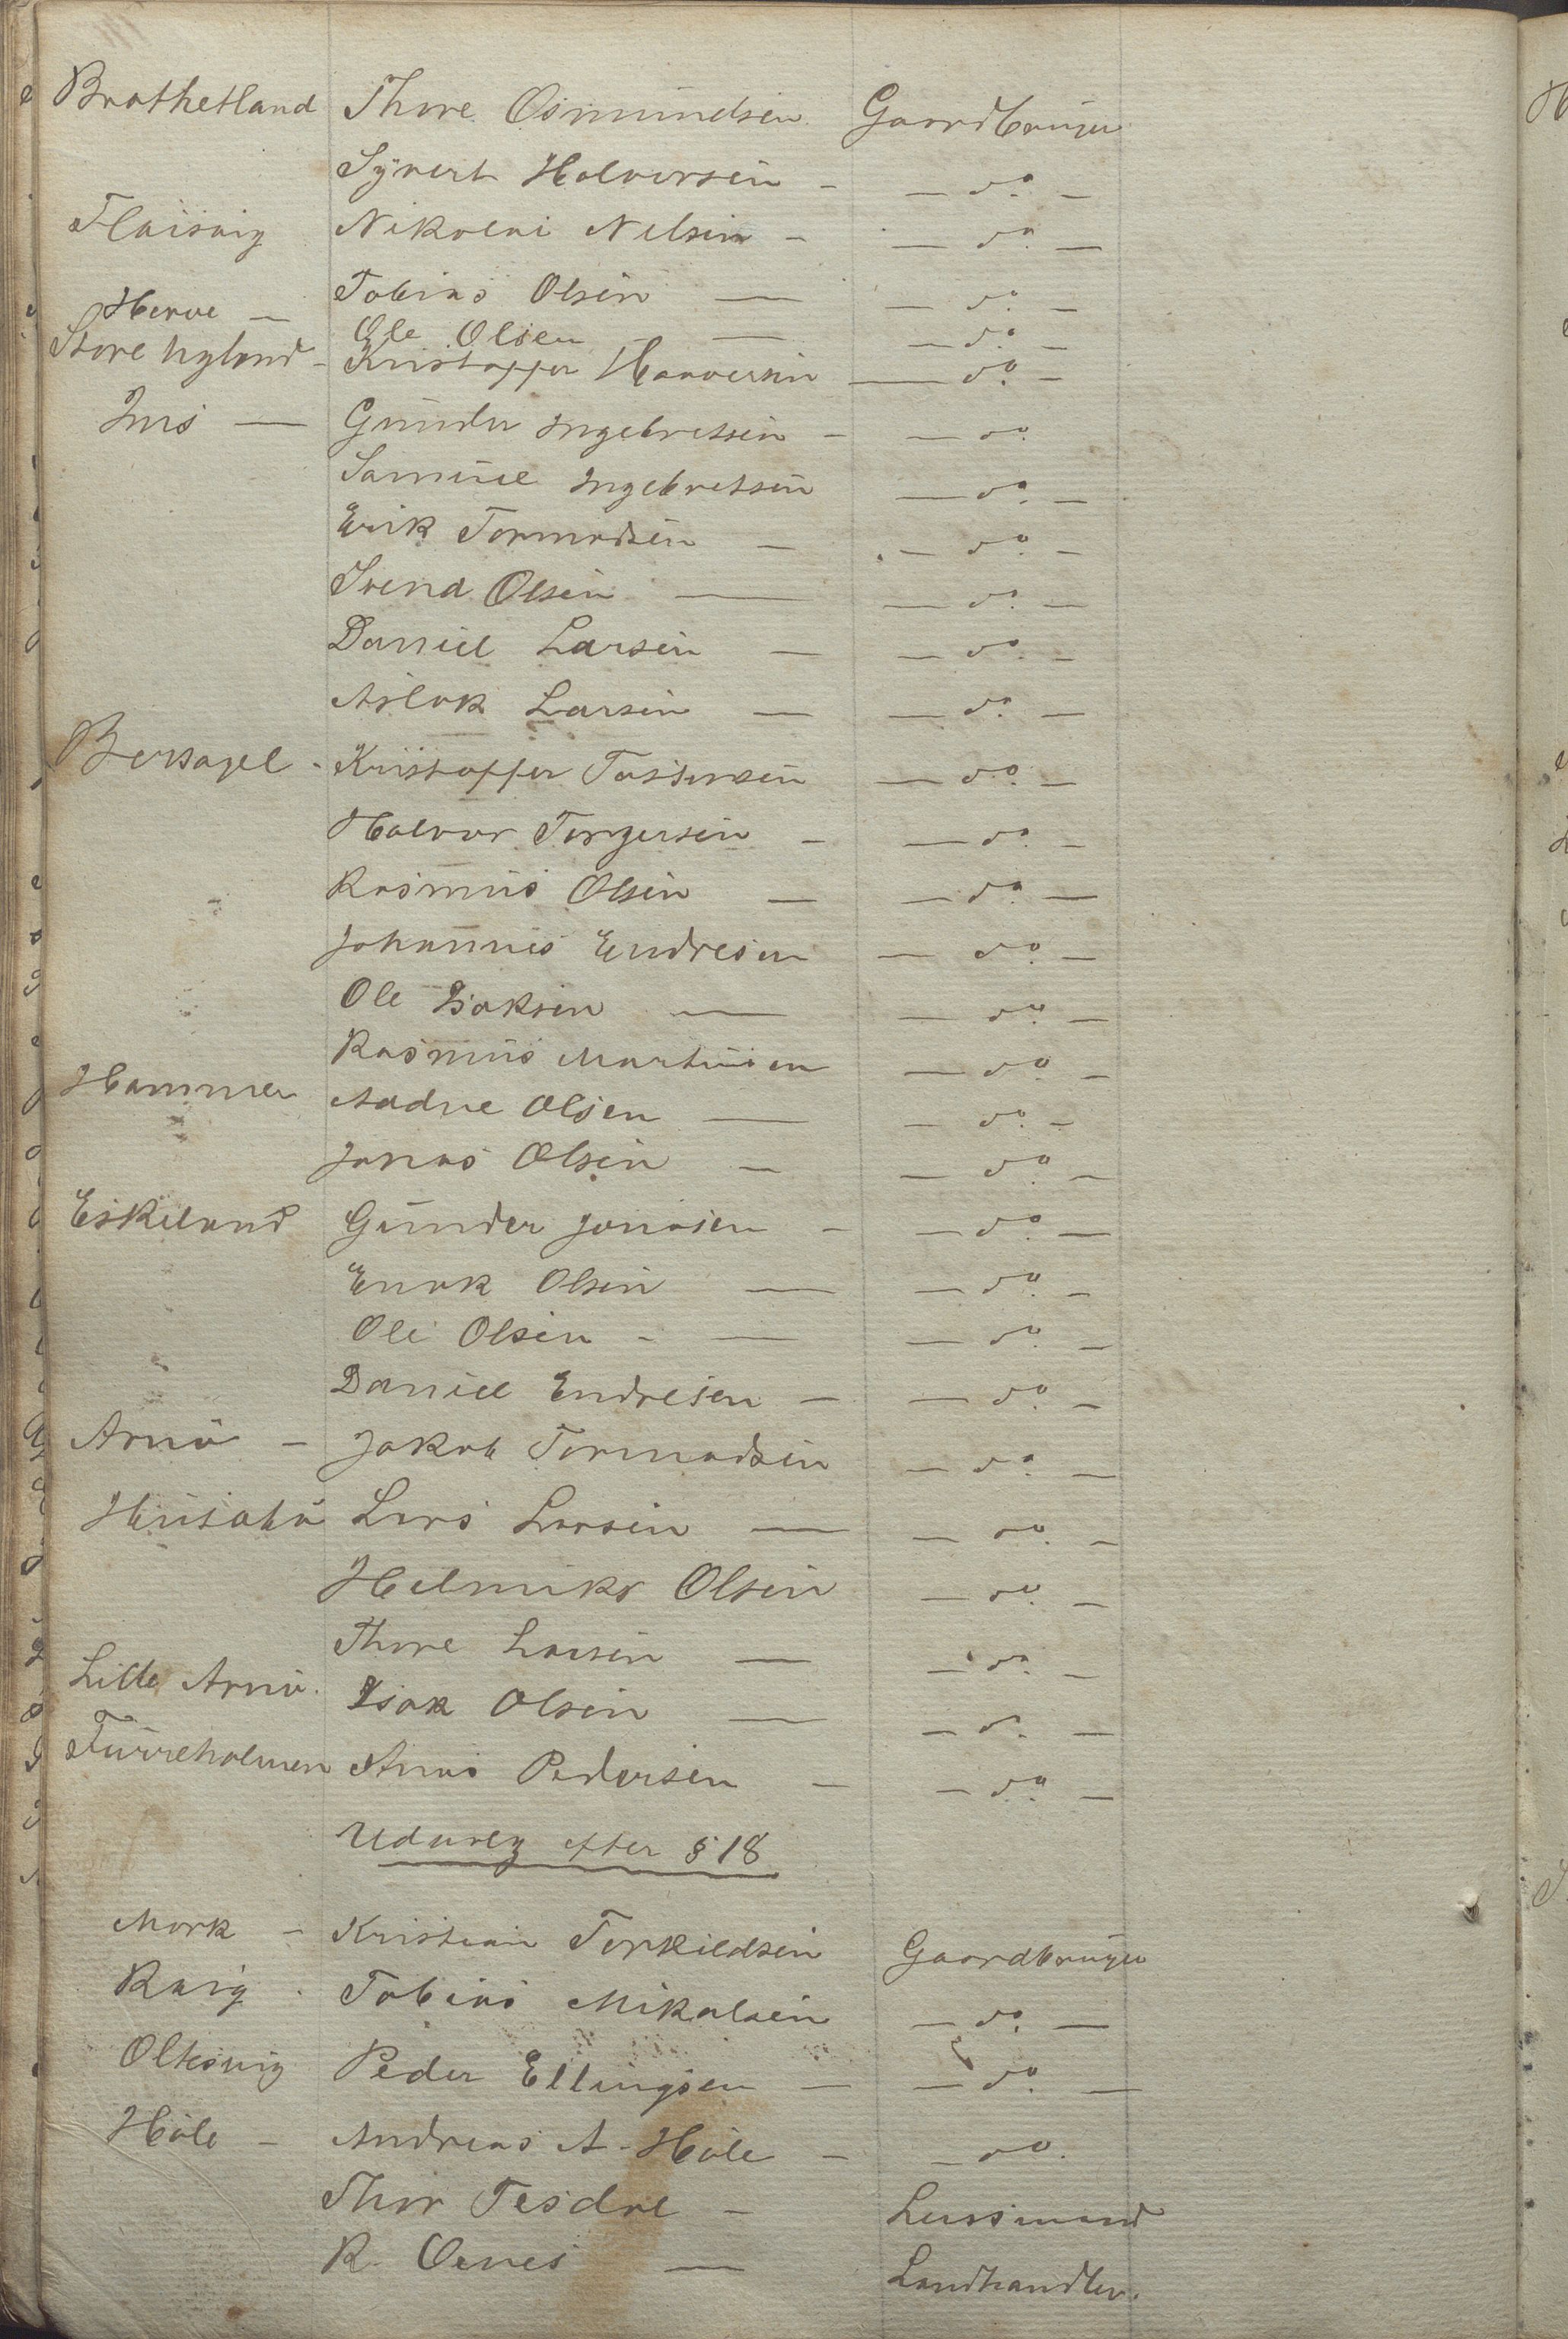 Brathetland Thore Osmundsen Gaardbruger
Syvert Halvorsen - — do. —
Flaisvig Nikolai Nilsen - — do. —
Tobias Olsen — — do. —
Herve — Ole Olsen — — do. —
Store Nyland - Kristoffer Haaversen — do. —
Ims — Gunder Ingebretsen - — do.
Samuel Ingebretsen — do. —
Erik Tormodsen — — do. —
Svend Olsen — — do. —
Daniel Larsen — — do. —
Aslak Larsen — — do. —
Bersagel - Kristoffer Tostensen — do. —
Halvor Torgersen - — do. —
Rasmus Olsen — — do. —
Johannes Endresen — do. —
Ole Isaksen — — do. —
Rasmus Martinsen — do. —
Hammer Aadne Olsen — — do. —
Jonas Olsen — — do. —
Eskeland Gunder Jonasen - — do. —
Enok Olsen — — do. —
Ole Olsen - — — do. —
Daniel Endresen — — do. —
Arnö — Jakob Tormodsen — do. —
Husabö Lars Larsen — — do. —
Helmik Olsen — do. —
Thore Larsen — — do. —
Lille Arnö. Isak Olsen — — do. —
Türreholmen Anas Pedersen — — do. —
Udvalg efter § 18
Mork — Kristian Torkildsen Gaardbruger
Tobias Mikalsen — do. —
Oltesvig Peder Ellingsen — — do. —
Höle — Andreas A. Höle — — do.
Thor Tesdal — Lensmand
R. Oenes — Landhandler.